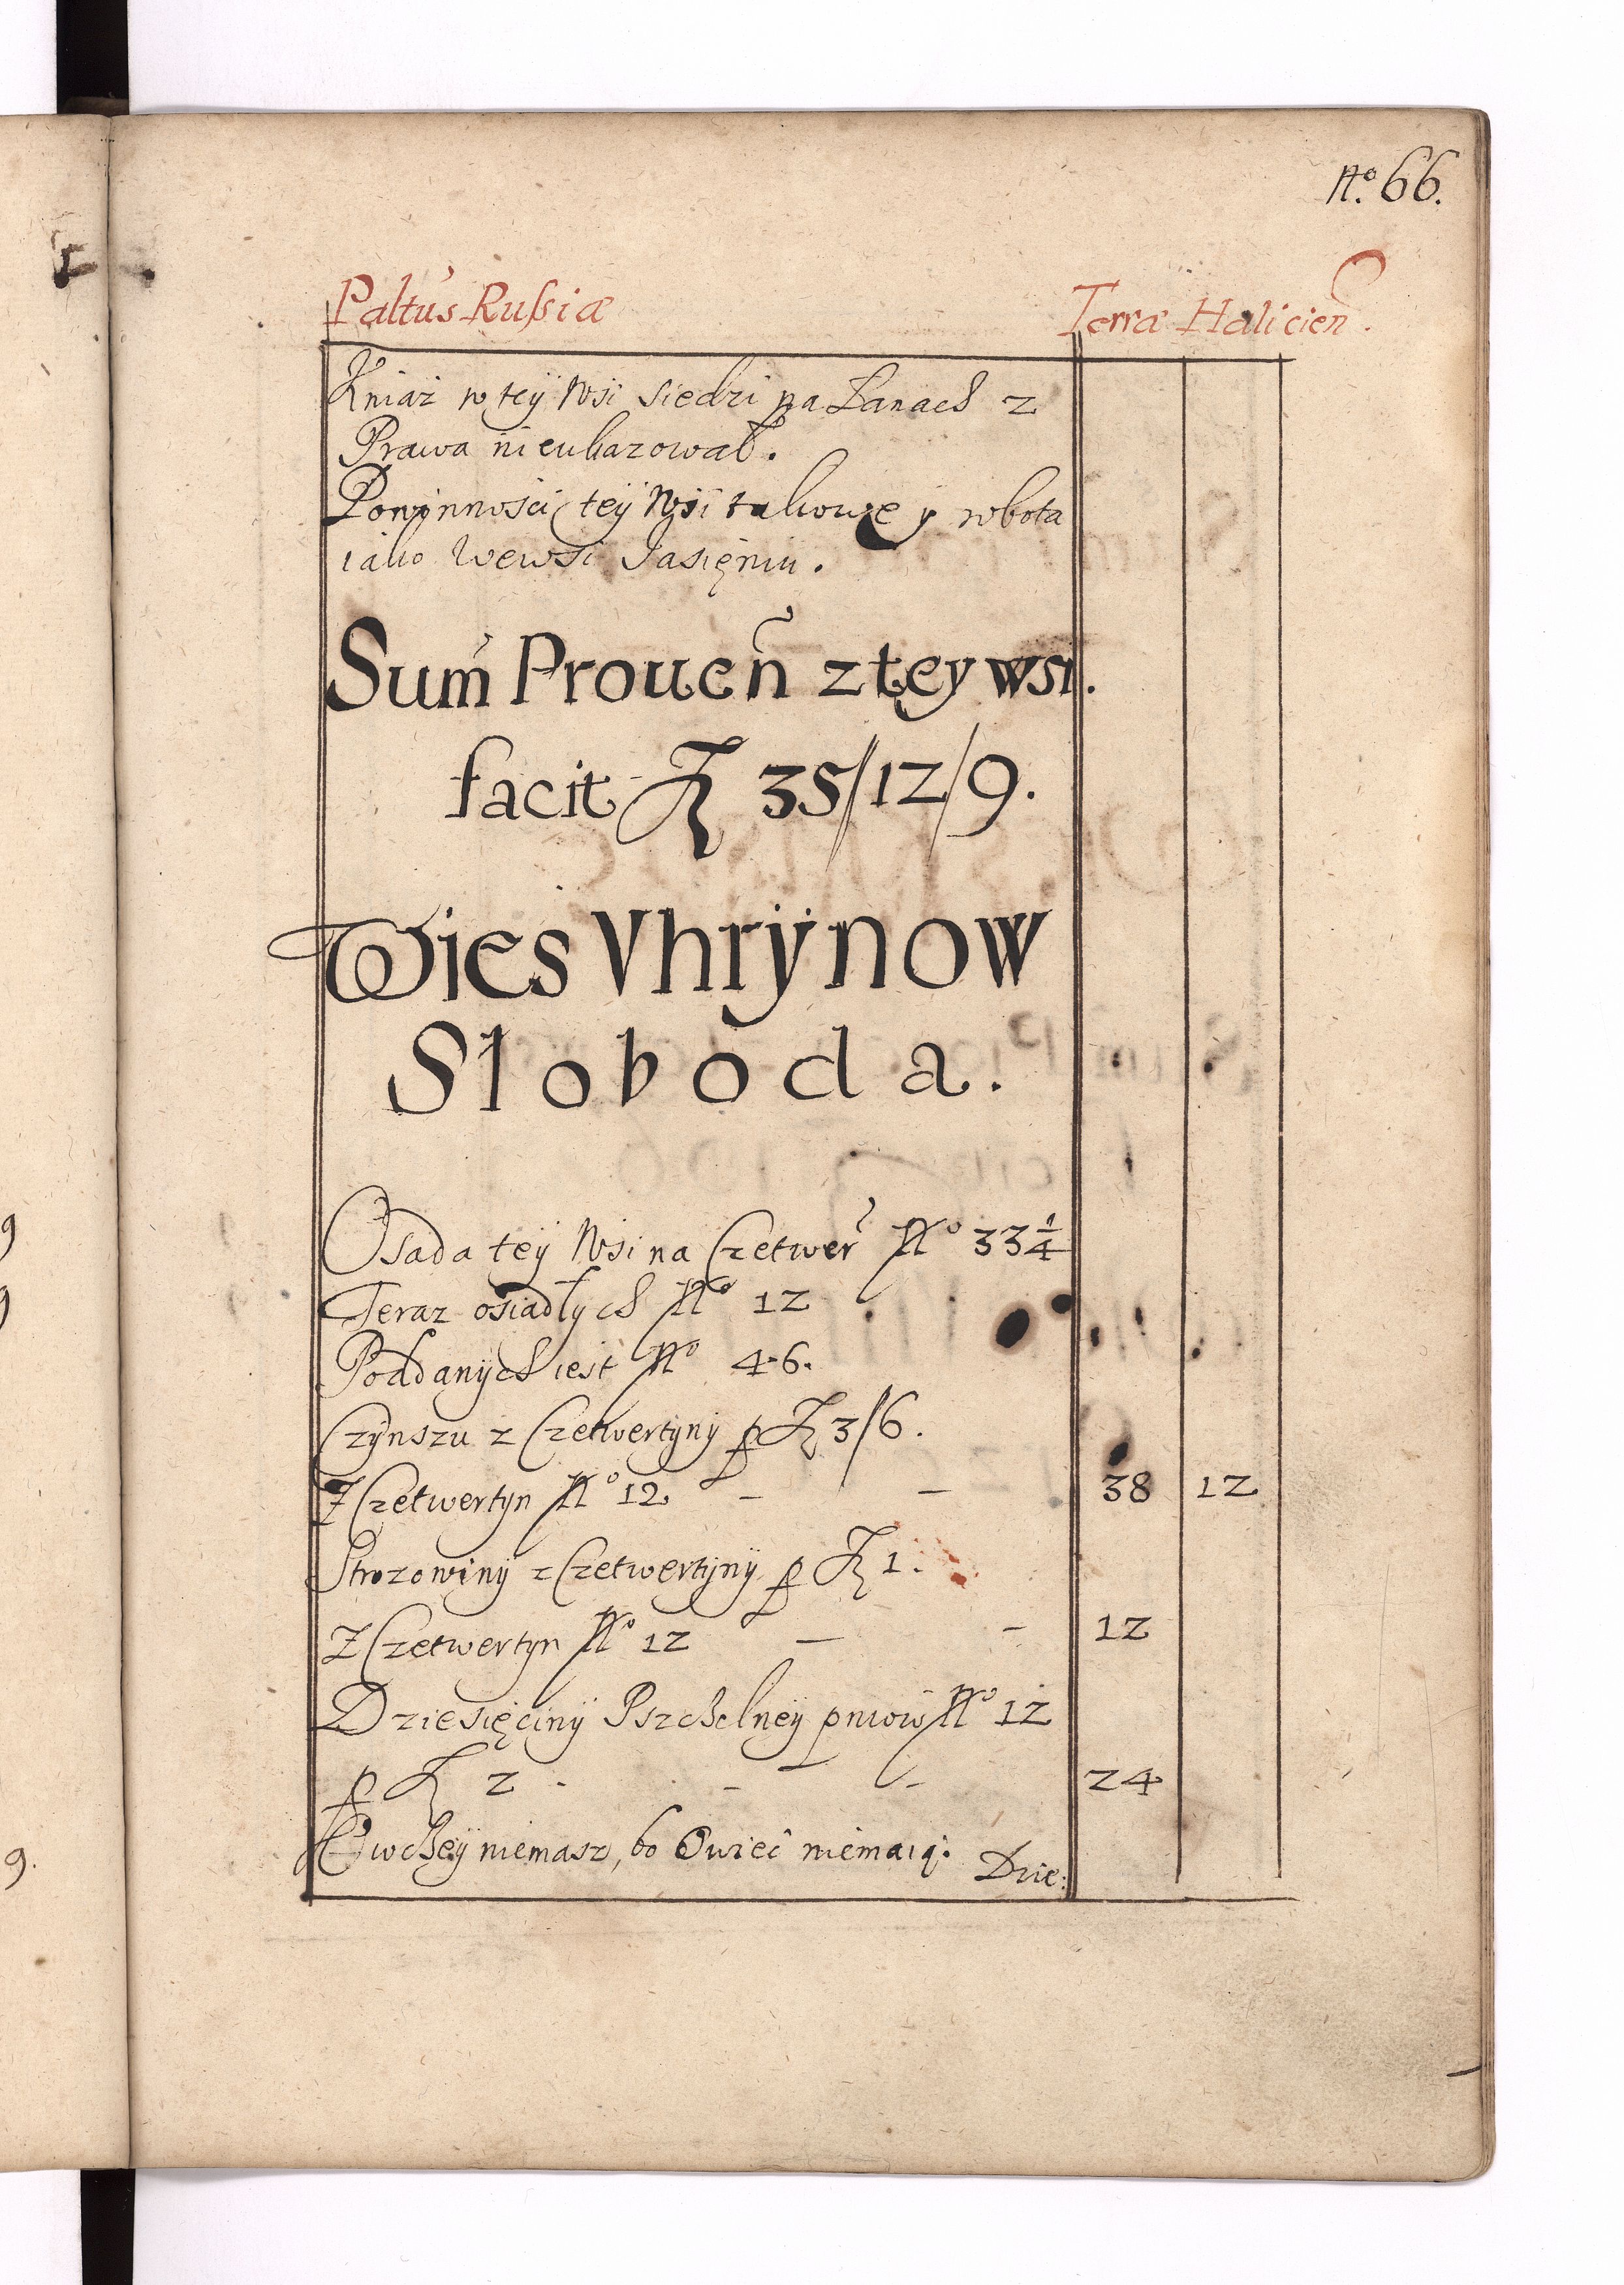 No. 66.
Paltus Russiæ Terræ Halicien.
Kniaz w teÿ Wsi siedzi na Łanach 2
Prawa nieukazował.
Powinnosci teÿ Wsi takowe y robota
iako Wewsi Jasięniu.
Sum̃ Proueñ z tey wsi.
facit fl 35/12/9.
Wies Vhrÿnow
Sloboda.
Osada teÿ Wsi na Czetwer No 33 1/4
Teraz osiadłych No 12
Poddanÿch iest No 46.
Czÿnszu z Czetwertÿnÿ p fl 3/6.
Z Czetwertÿn No 12. – – 38 12
Strozowinÿ z Czetwertÿnÿ p fl 1.
Z Czetwertÿn No 12 – – 12
Dziesięcinÿ Pszchelneÿ pniow No 12
p fl 2 - - - 24
Owcheÿ niemasz, bo Owiec niemaią. Dzie: